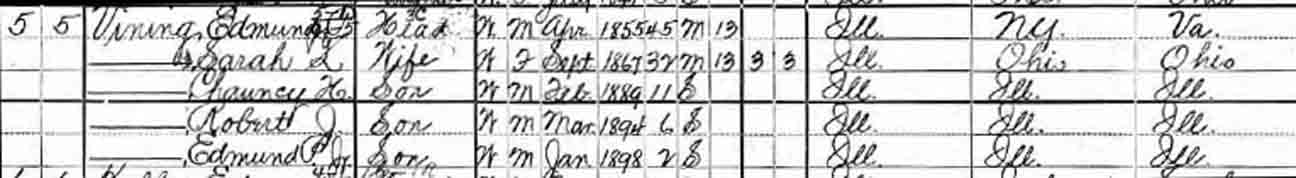 5 5 Vining, Edmund Head W M Apr 1855 45 M 13 Ill. N.Y. Va.
Sarah L Wife W F Sept 1867 32 M 13 3 3 Ill. Ohio Ohio
Chauncy H. Son W M Feb 1889 11 S Ill. Ill. Ill.
Robert J Son W M Mar. 1894 6 S Ill. Ill. Ill.
Edmund Jr. Son W M Jan 1898 2 S Ill. Ill. Ill.